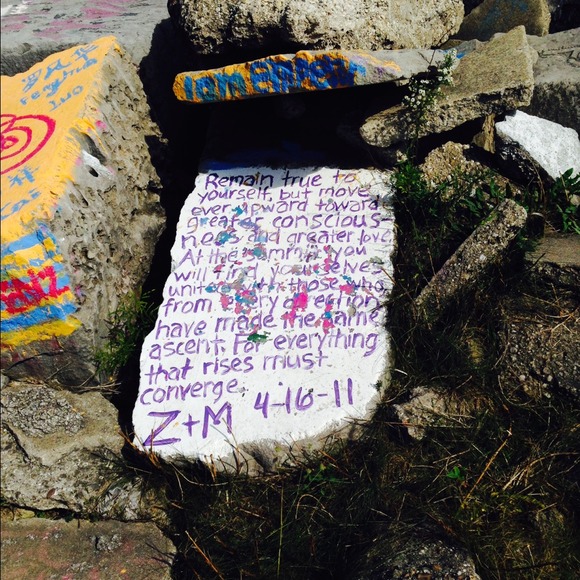 罗风华
Fenghua
Luo
Remain true to
yourself, but move
ever upward toward
greater conscious-
ness and greater love.
At the summit you
will find yourselves
united with those who,
from every direction,
have made the same
ascent. For everything
that rises must
converge.
Z+M 4-16-11